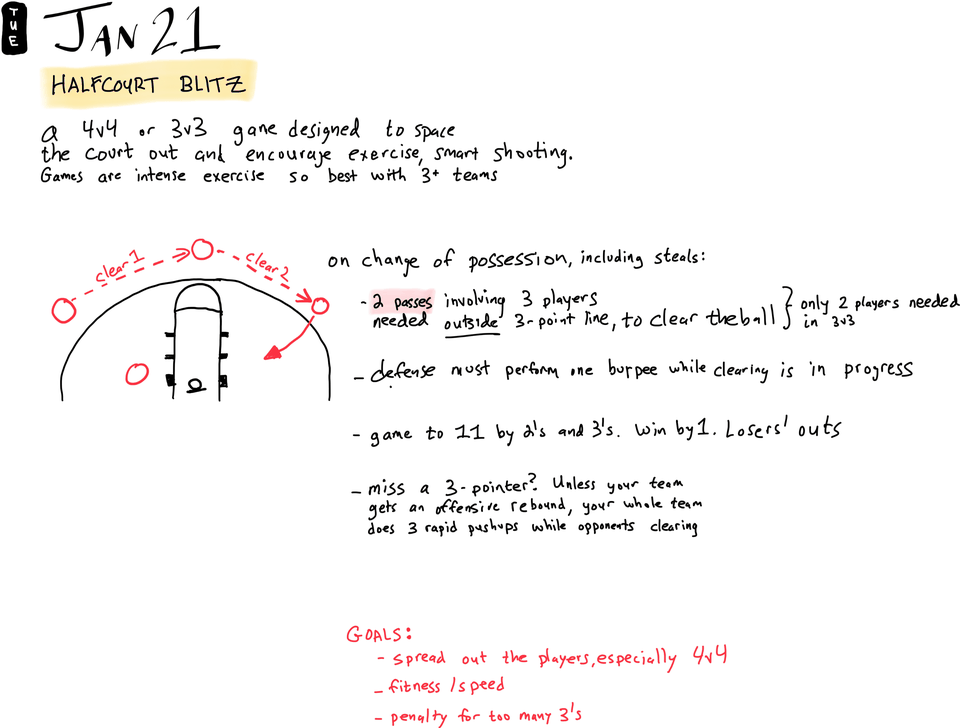 TUE
JAN 21
HALFCOURT BLITZ
a 4v4 or 3v3 gane designed to space
the court out and encourage exercise, smart shooting.
Games are intense exercise so best with 3+ teams
clear 1
clear 2
on change of possession, including steals:
- 2 passes involving 3 players
needed outside 3-point line, to clear the ball
only 2 players needed
in 3v3
- defense must perform one burpee while clearing is in progress
- game to 11 by 2's and 3's. Win by 1. Losers' outs
- miss a 3-pointer? Unless your team
gets an offensive rebound, your whole team
does 3 rapid pushups while opponents clearing
GOALS:
- spread out the players, especially 4v4
- fitness / speed
- penalty for too many 3's